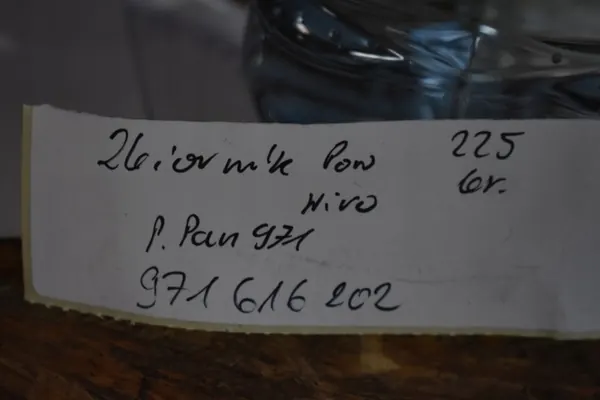 Zbiornik Pow 225
Niro Gr.
P. Pan 971
971 616 202